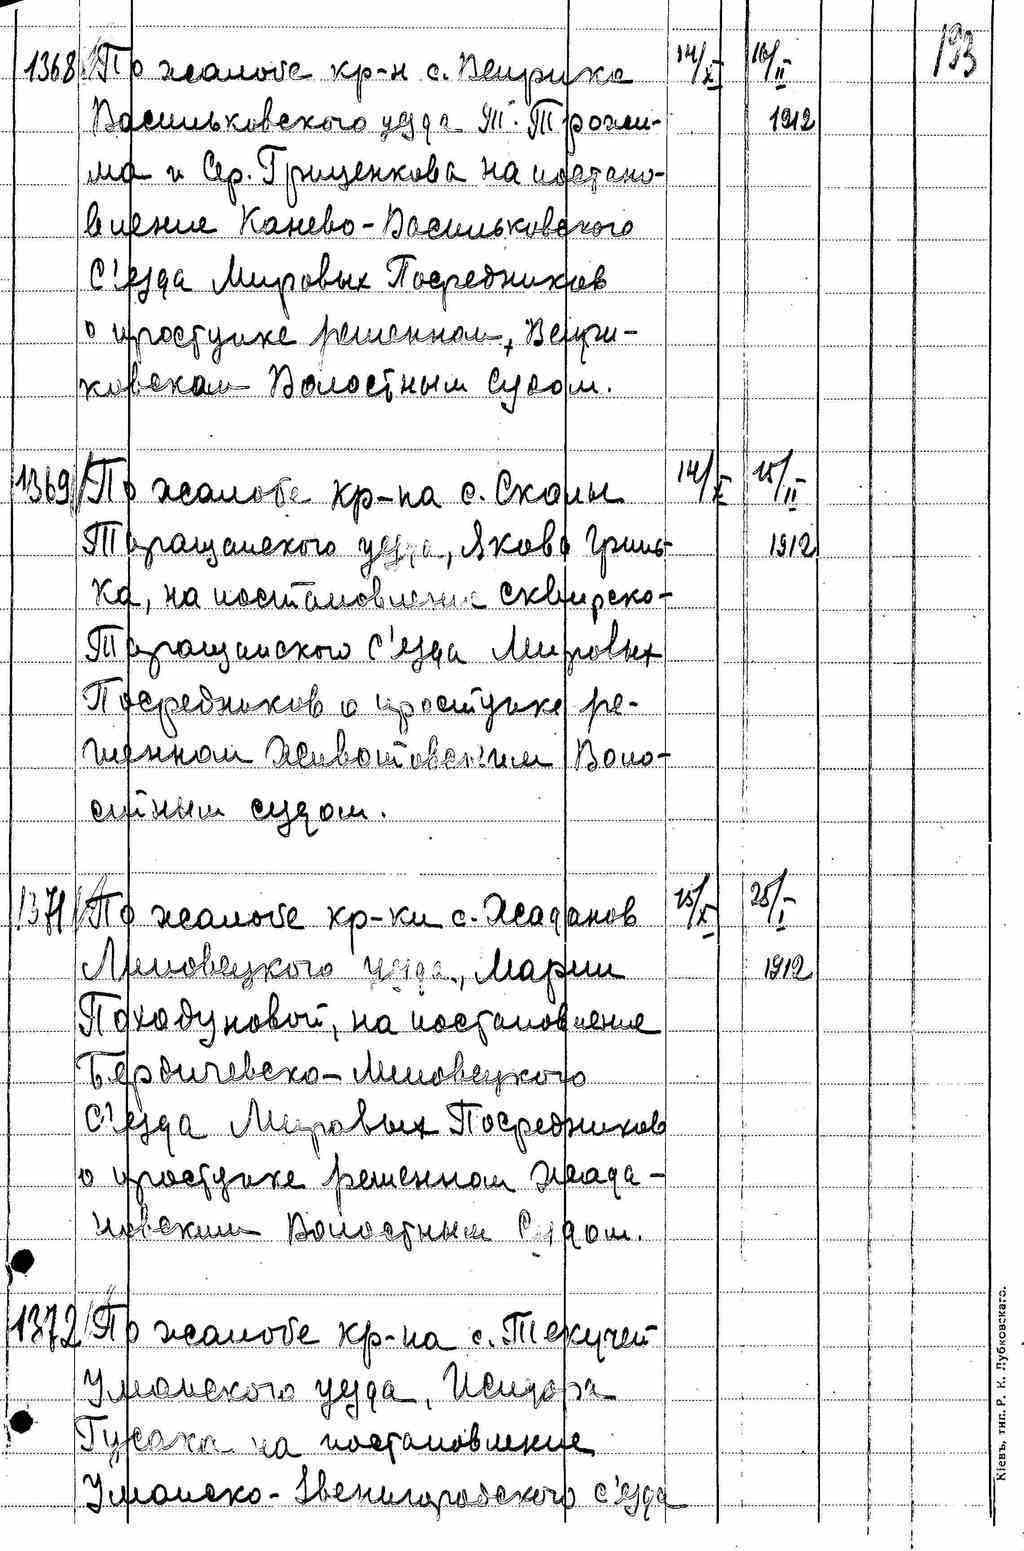 193
1368 По жалобе кр-н с. Веприка 14/X 16/II
Васильковского уезда М. Трохи- 1912
ма и Сер. Грищенкова на постано-
вление Канево-Васильковского
С'езда Мировых Посредников
о проступке решенном, Вепри-
ковским Волостным Судом.
1369 По жалобе кр-на с. Скалы 14/X 15/II
Таращанского уезда, Якова Гринь- 1912
ка, на постановление Сквирско-
Таращанского С'езда Мировых
Посредников о проступке ре-
шенном Животовским Воло-
стным судом.
1371 По жалобе кр-ки с. Жаданов 25/X 25/I
Липовецкого уезда, Марии 1912
Походуновой, на постановление
Бердичевско-Липовецкого
С'езда Мировых Посредников
о проступке решенном Жада-
новским Волостным Судом.
1372 По жалобе кр-на с. Текучей
Уманского уезда, Исидора
Гусака на постановление
Уманско-Звенигородского с'езда
Кіевъ, тип. Р. К. Лубковскаго.